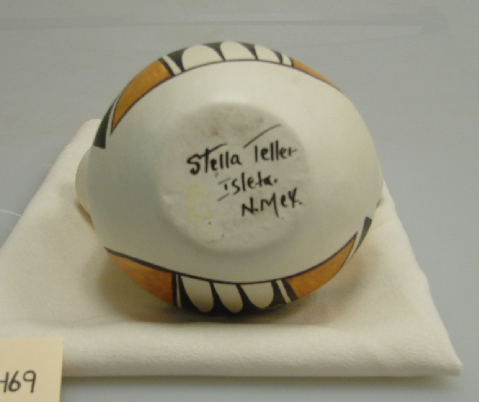 Stella Teller
Isleta.
N.Mex.
469